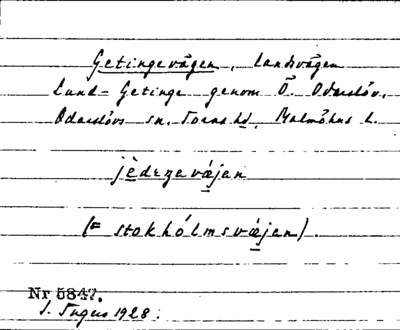 Getingevägen, Landsvägen
Lund-Getinge genom Ö. Odarslöv,
Odarslövs sn. Torna hd, Malmöhus l.
jèdeŋevæjen
(= stokhólmsvæjen).
Nr 5847.
S. Ingers 1928.